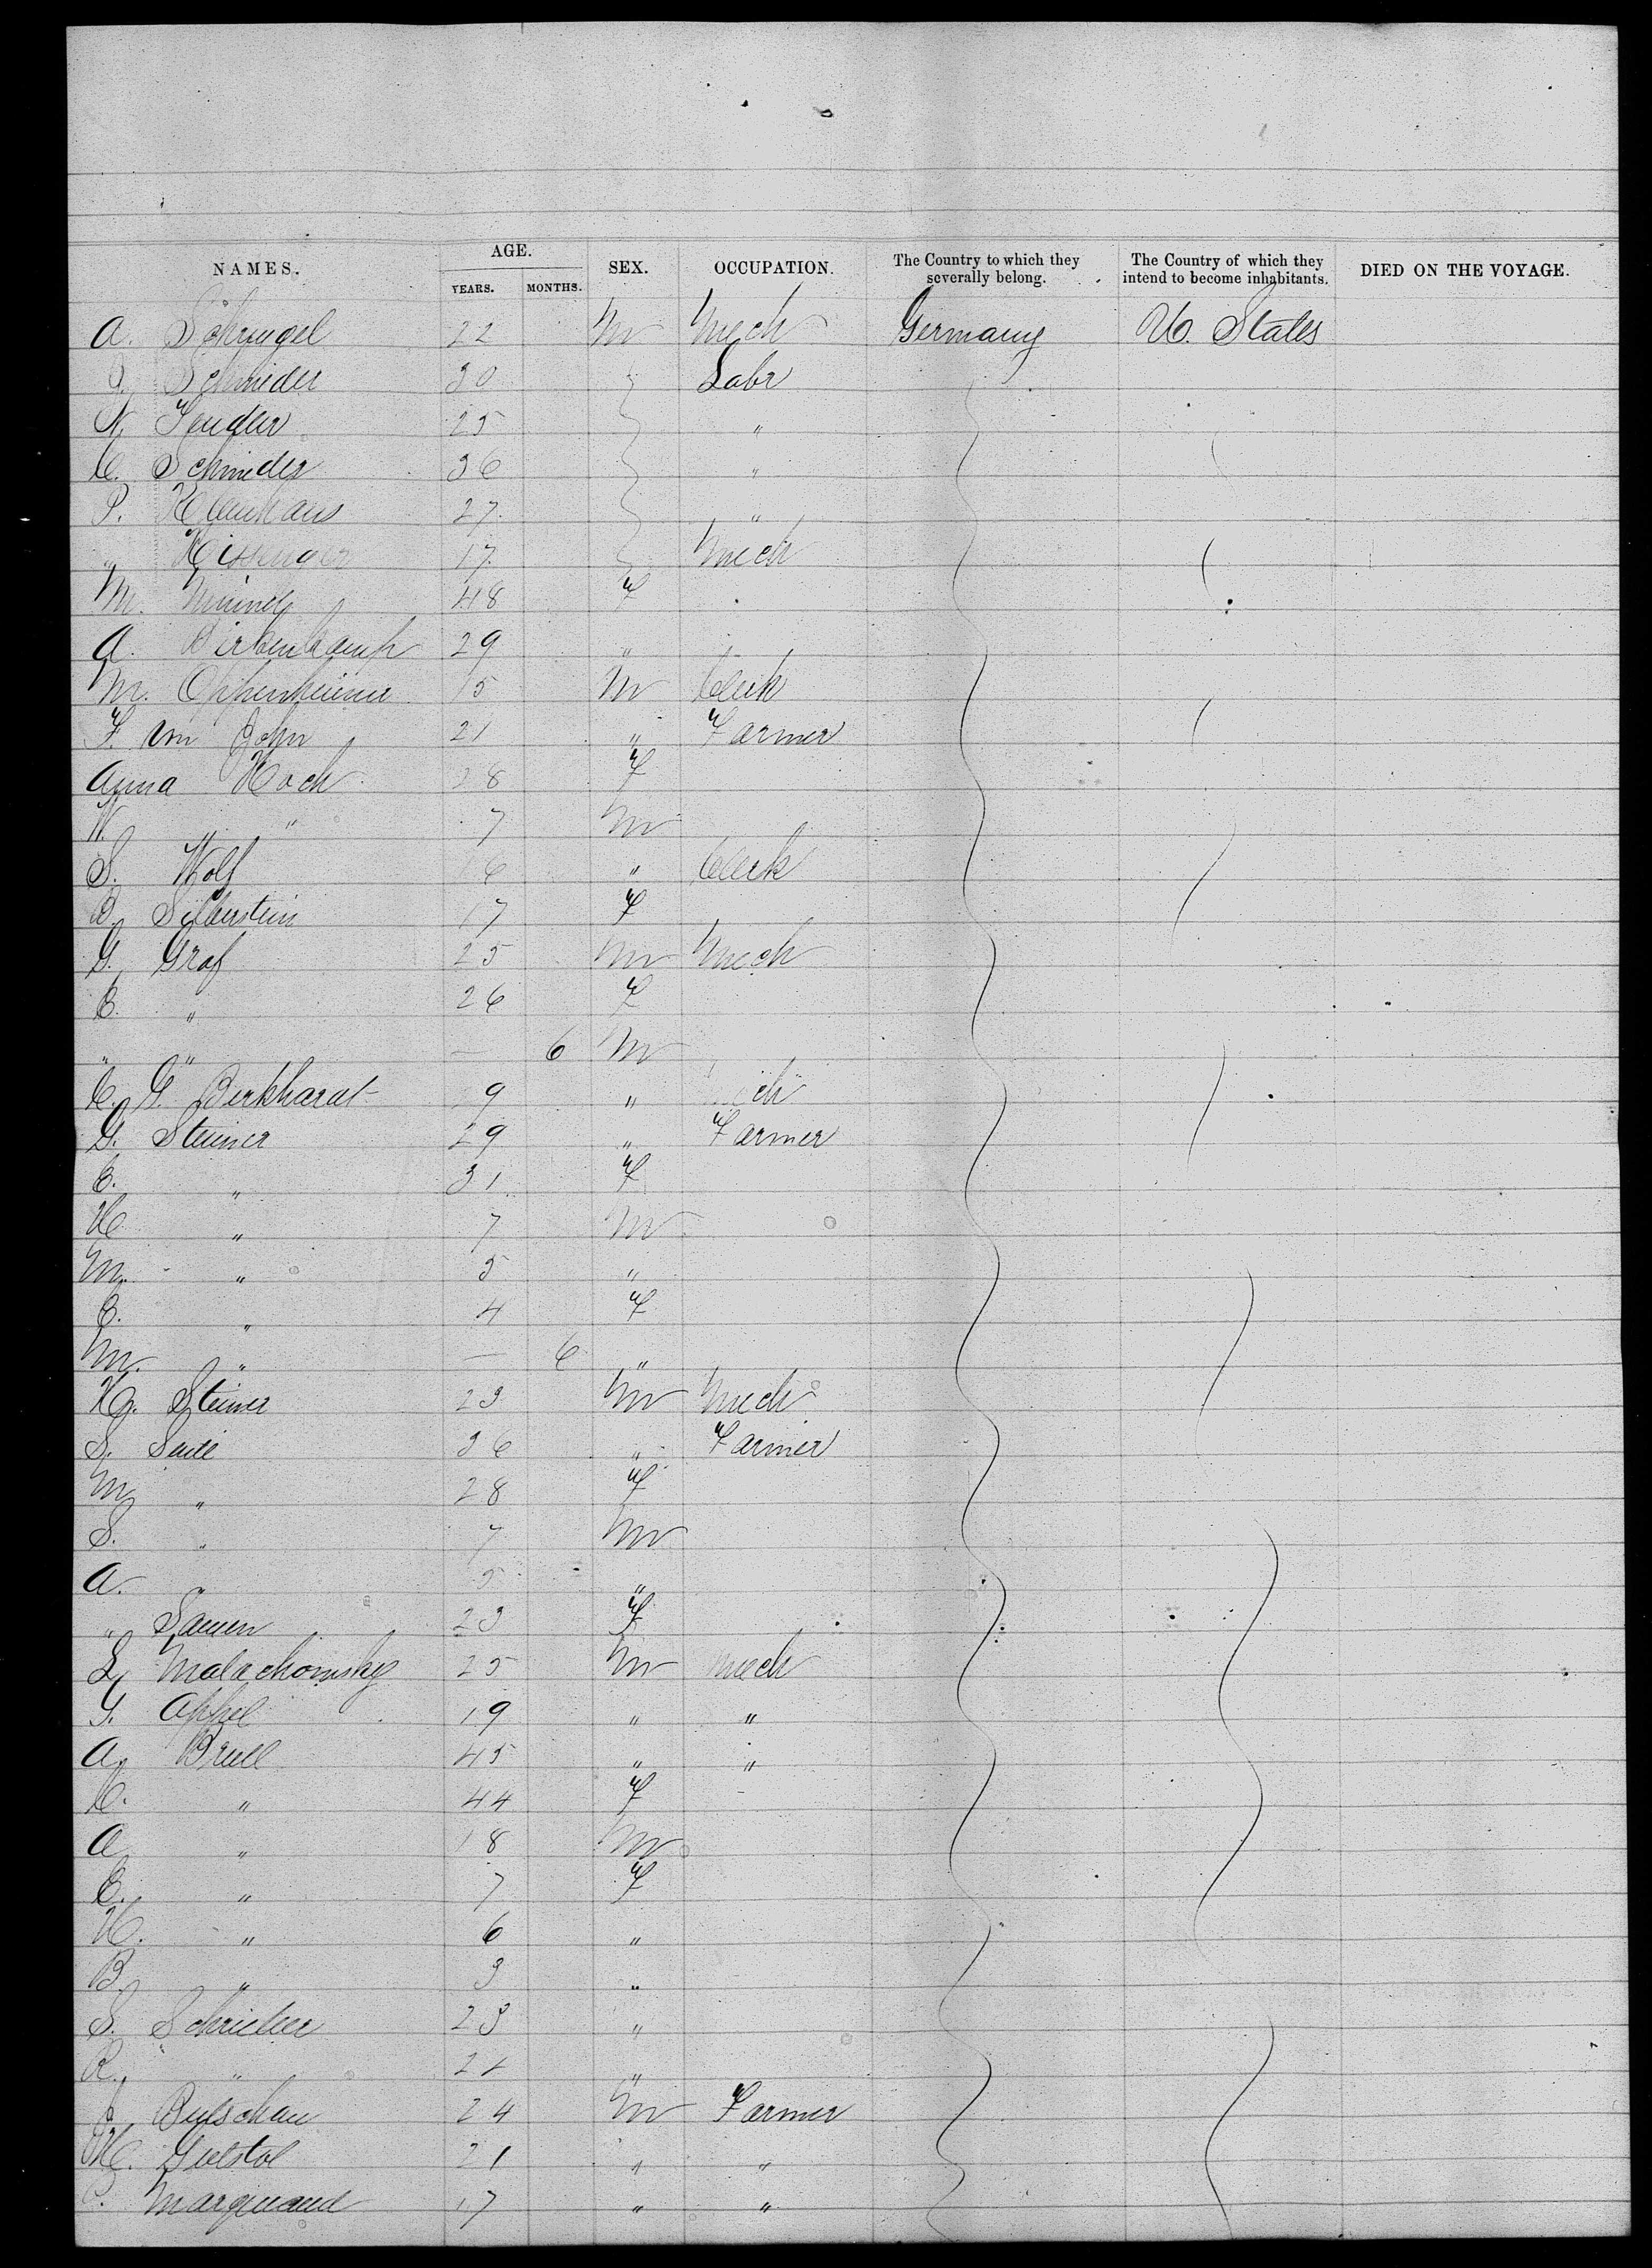 NAMES. AGE. YEARS. MONTHS. SEX. OCCUPATION. The Country to which they severally belong. The Country of which they intend to become inhabitants. DIED ON THE VOYAGE.
A. Schrugel 22 M Mech Germany U. States
Schmieder 30 Labr
N. 25 "
C. Schmieder 36 "
P. Kleinhaus 27 "
" Kissinger 17 Mech
M. 48 F
A. Birkenkamp 29 "
M. Oppenheimer 15 M Clerk
F. von John 21 " Farmer
Anna Koch 28 F
W. " 7 M
S. Wolf 16 " Clerk
B. Silberstein 17 F
G. Graf 25 M Mech
C. " 26 F
" " — 6 M
C. G. Burkhardt 29 " Mech
G. Steiner 29 " Farmer
C. " 31 F
H " 7 M
M. " 5 "
C. " 4 F
M. " — 6 "
Hg. Steiner 23 M Mech
S. 36 " Farmer
M " 28 F
S. " 7 M
A. " 5 "
" Samen 23 F
L. Malachowsky 25 M Mech
G. Appel 19 " "
A. Brull 45 " "
C. " 44 F
A " 18 M
C. " 7 F
H. " 6 "
B. " 3 "
S. 23 "
R. " 21 "
J. Butschau 24 M Farmer
H. 21 " "
Marquand 17 " "